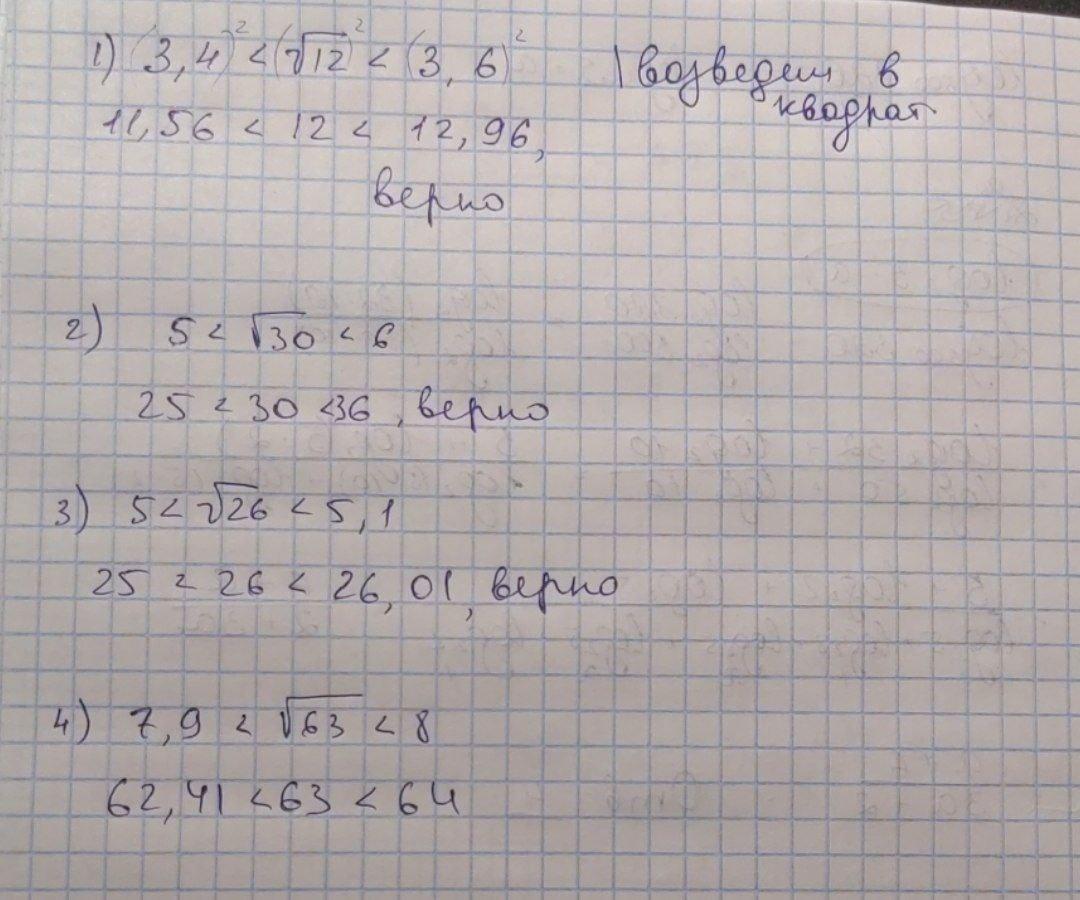 1) (3,4)² < (√12)² < (3,6)² | возведем в
квадрат
11,56 < 12 < 12,96,
верно
2) 5 < √30 < 6
25 < 30 < 36, верно
3) 5 < √26 < 5,1
25 < 26 < 26,01, верно
4) 7,9 < √63 < 8
62,41 < 63 < 64